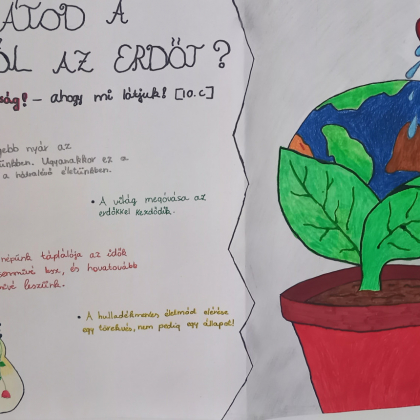 ÁTOD A
ÓL AZ ERDŐT?
ság! - ahogy mi látjuk! [10.c]
gebb nyár az
ünkben. Ugyanakkor ez a
a hálaadás életünkben.
• A világ megóvása az
erdőkkel kezdődik.
népünk táplálója az idők
semmivé lesz, és hovatovább
ivé leszünk.
• A hulladékmentes életmód elérése
egy törekvés, nem pedig egy állapot!